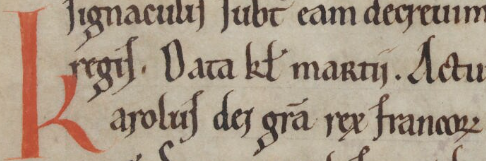 signaculis subt̄ eam decrevim
regis. Data kł martii. Actu
Karolus dei grã rex francoꝝ